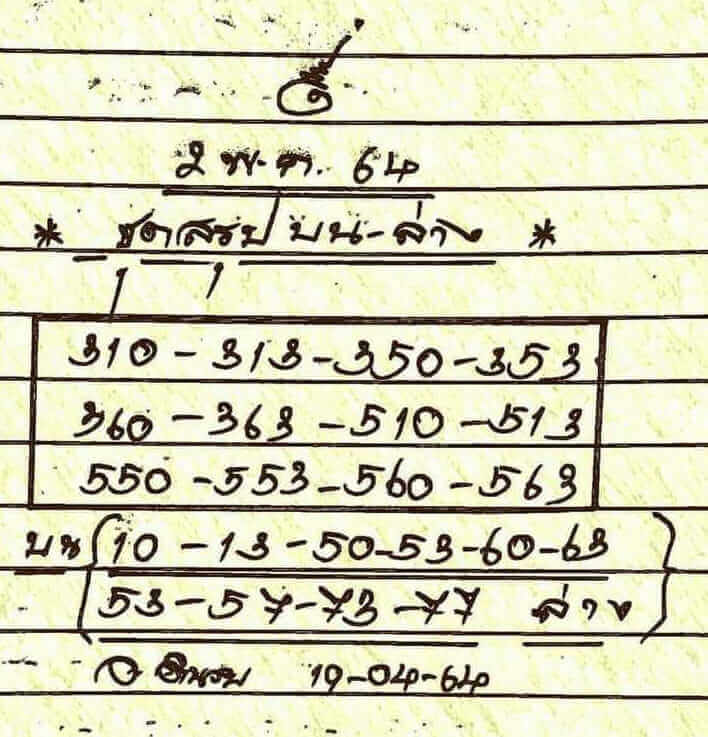 2 พ.ค. 64
* ชุดสรุป บน-ล่าง *
310 - 313 - 350 - 353
360 - 363 - 510 - 513
550 - 553 - 560 - 563
บน (10 - 13 - 50 - 53 - 60 - 63
53 - 57 - 73 - 77 ล่าง)
19-04-64